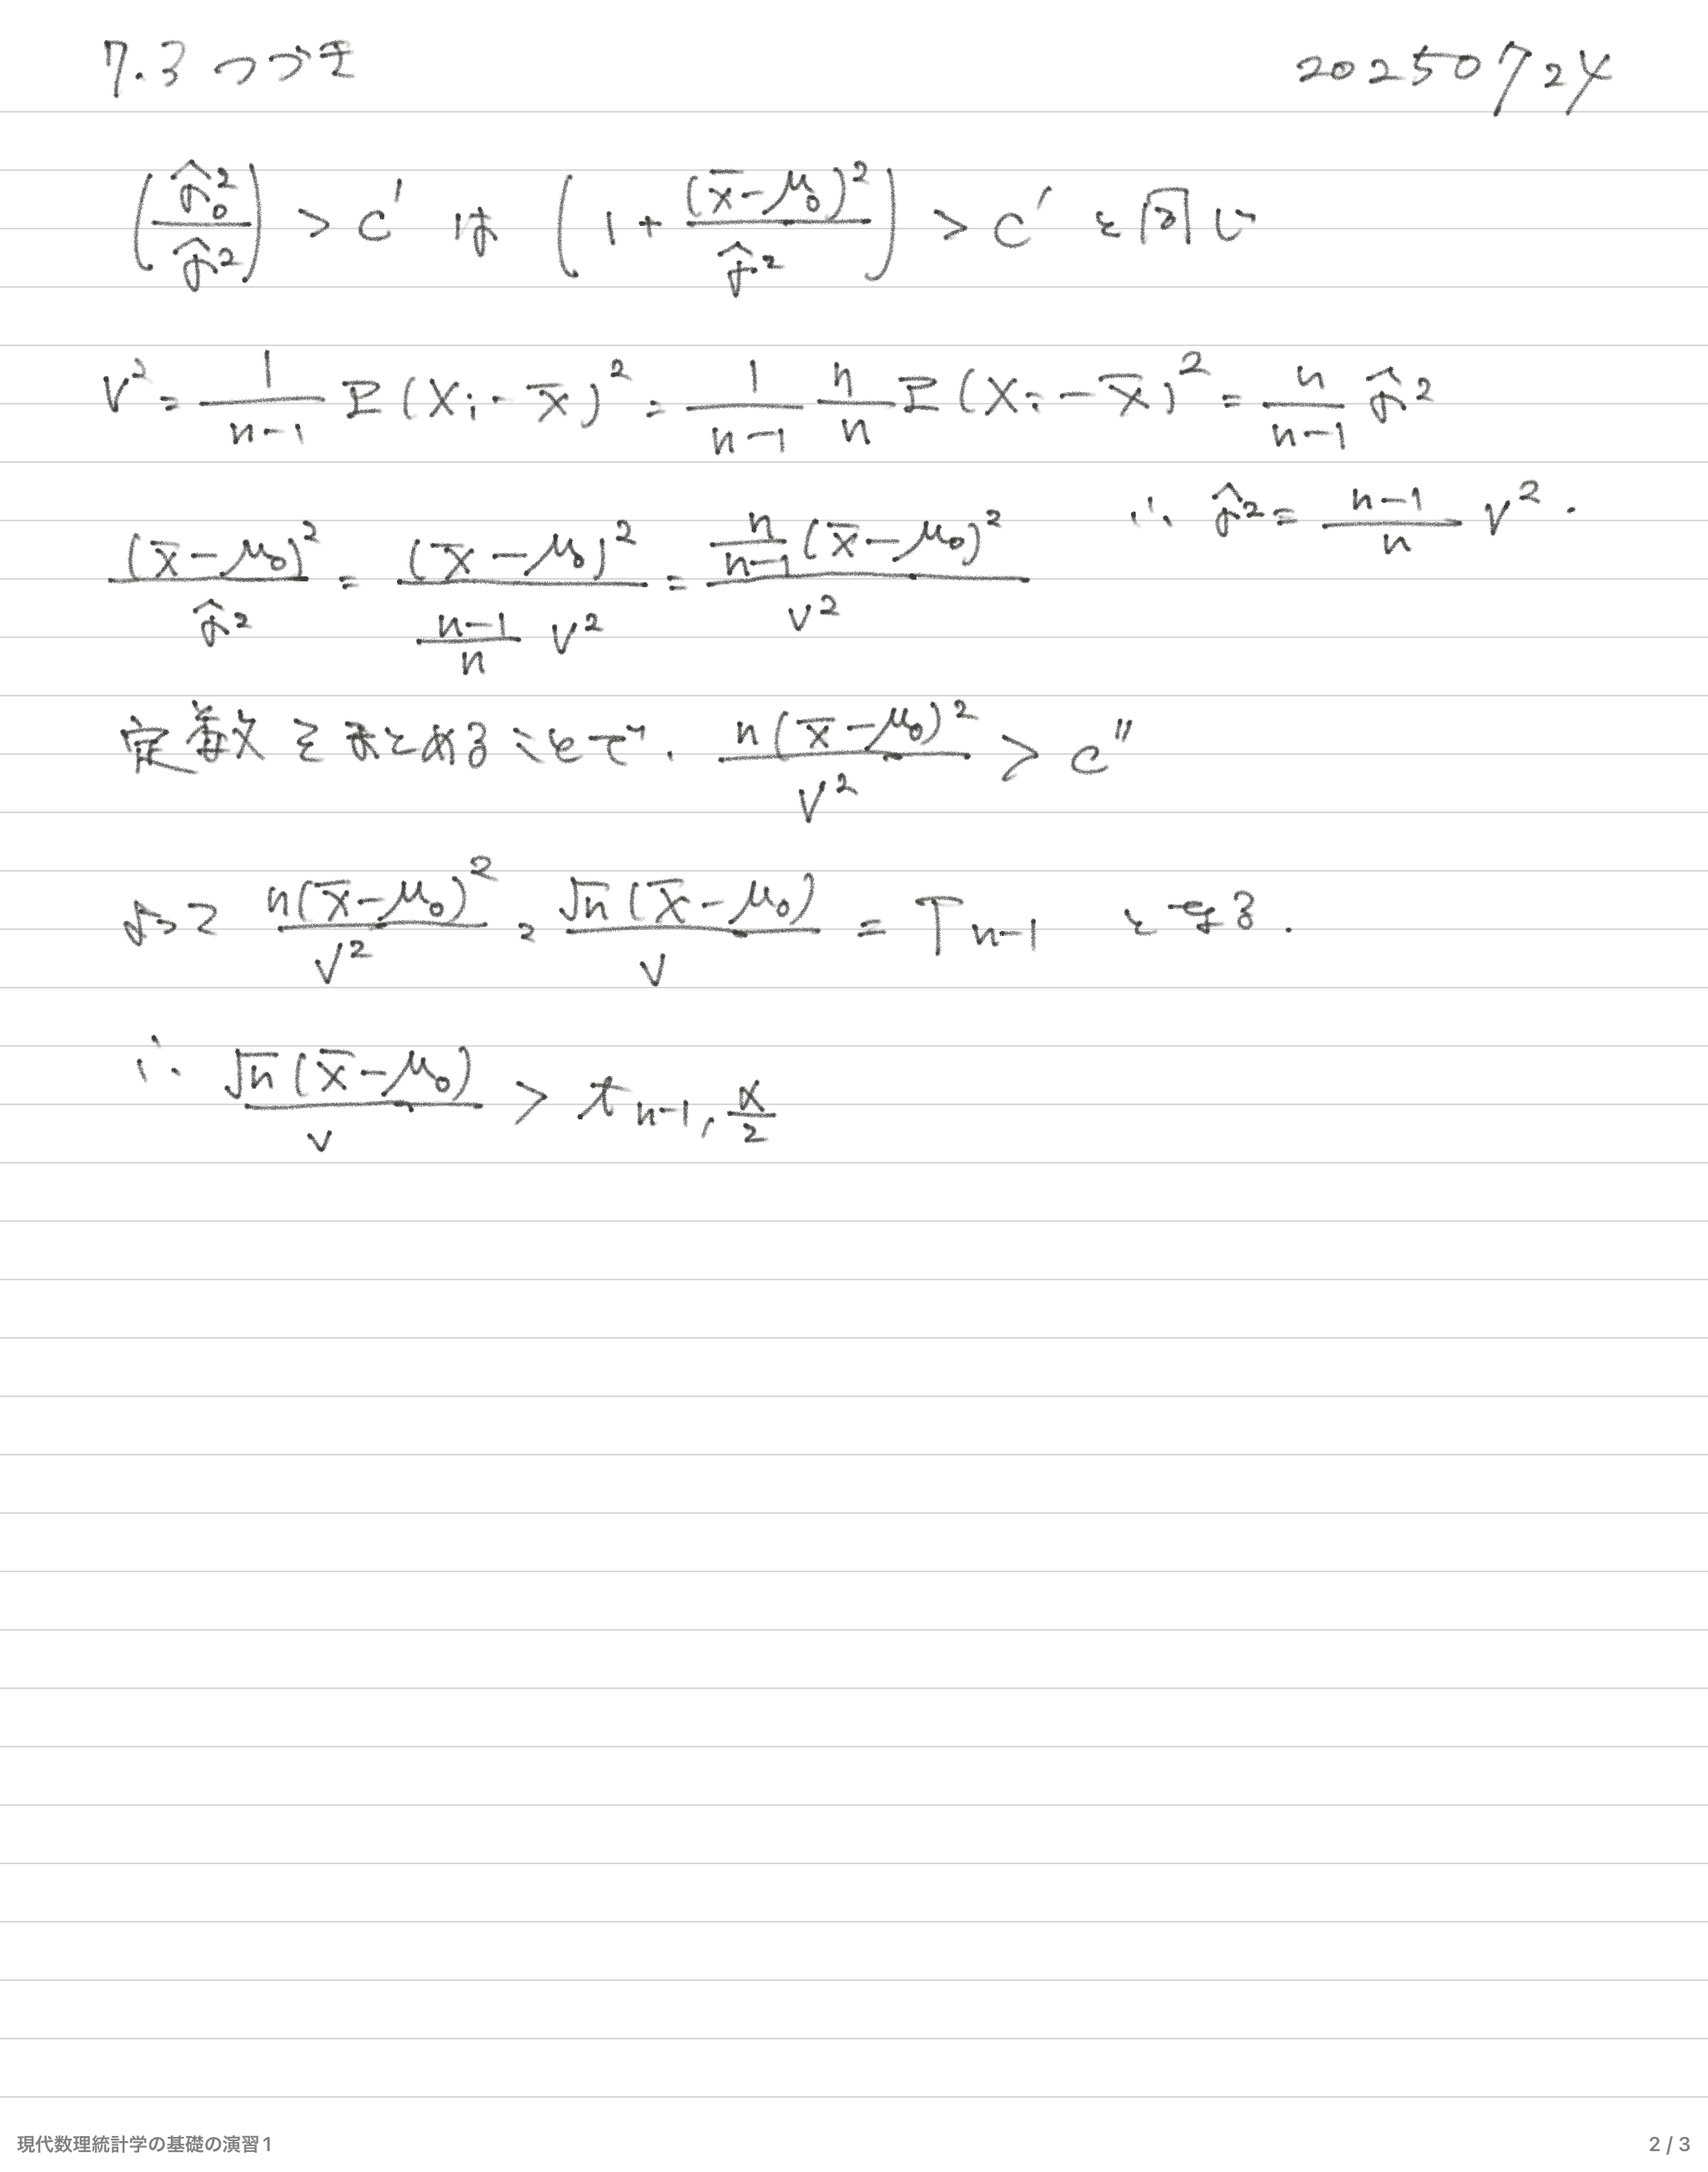 7.3 つづき 20250724
(σ̂₀²/σ̂²) > c' は (1 + (x̄-μ₀)²/σ̂²) > c' と同じ
V² = 1/(n-1) Σ(Xi - x̄)² = 1/(n-1) n/n Σ(Xi - x̄)² = n/(n-1) σ̂²
∴ σ̂² = (n-1)/n V².
(x̄-μ₀)²/σ̂² = (x̄-μ₀)²/((n-1)/n V²) = (n/(n-1) (x̄-μ₀)²)/V²
定数をまとめることで. n(x̄-μ₀)²/V² > c''
よって n(x̄-μ₀)²/V² = √n(x̄-μ₀)/V = Tn-1 となる.
∴ √n(x̄-μ₀)/V > t n-1, α/2
現代数理統計学の基礎の演習1 2 / 3